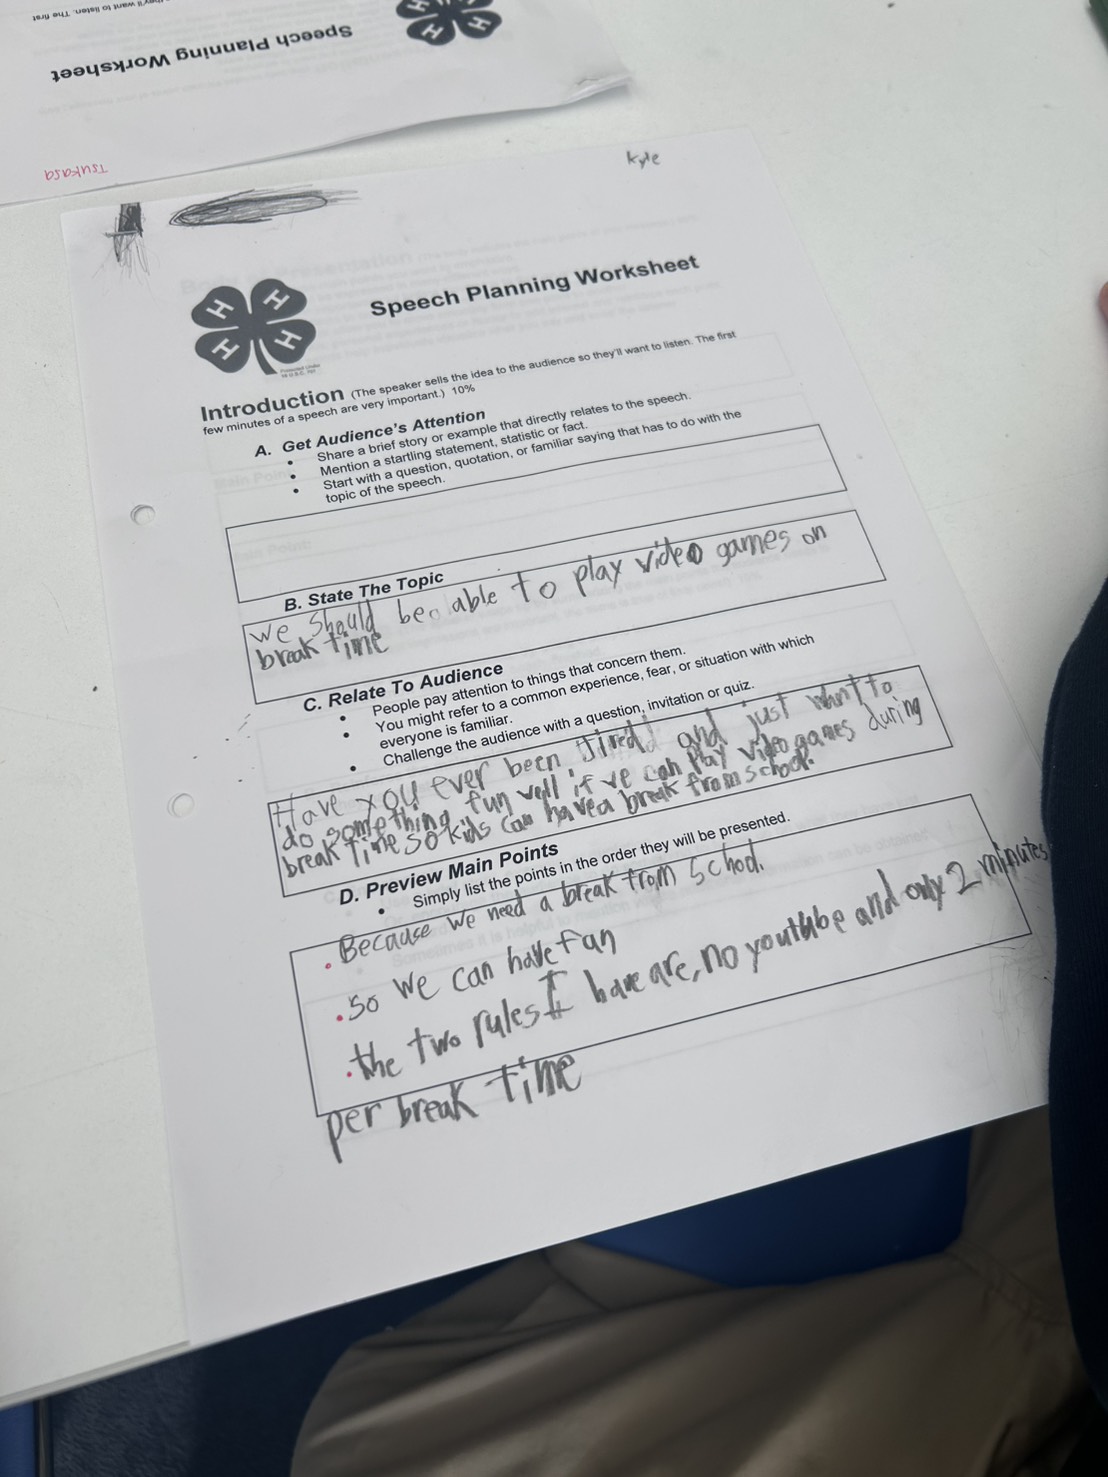 they'll want to listen. The first
Speech Planning Worksheet
H H
Tsukasa
Kyle
H H H H
Speech Planning Worksheet
Introduction (The speaker sells the idea to the audience so they'll want to listen. The first
few minutes of a speech are very important.) 10%
A. Get Audience's Attention
• Share a brief story or example that directly relates to the speech.
• Mention a startling statement, statistic or fact.
• Start with a question, quotation, or familiar saying that has to do with the
topic of the speech.
B. State The Topic
we should be able to play video games on
break time
C. Relate To Audience
• People pay attention to things that concern them.
• You might refer to a common experience, fear, or situation with which
everyone is familiar.
• Challenge the audience with a question, invitation or quiz.
Have you ever been tired and just want to
do something fun well if we can play video games during
break time so kids can have a break from school.
D. Preview Main Points
• Simply list the points in the order they will be presented.
• Because we need a break from school.
• so we can have fun
• the two rules I have are, no youtube and only 2 minutes
per break time